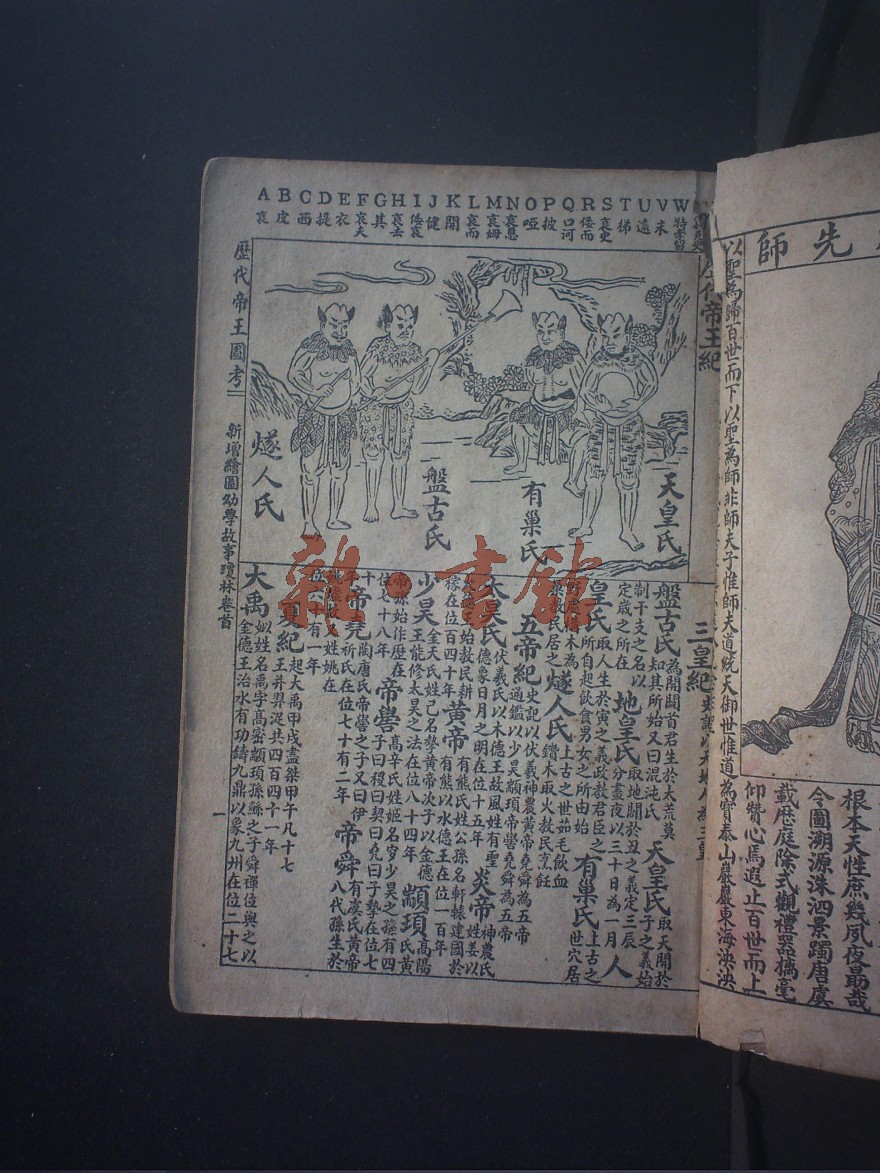 A B C D E F G H I J K L M N O P Q R S T U V W
歷代帝王圖考
新增繪圖幼學故事瓊林卷首
一
歷代帝王紀
天皇氏
有巢氏
盤古氏
燧人氏
三皇紀
盤古氏
為開闢首君生於大荒莫
知其所始又曰混沌氏
天皇氏
取天開於
子之義始
制干支之名以
定歲之所在
地皇氏
取地闢於丑之義定三辰
分晝夜以三十日為一月
人皇氏
取人生於寅之義政教君臣之
所自起飲食男女之所由始
有巢氏
上古之
世穴居
木為
巢教民居之
燧人氏
上古之世茹毛飲血
鑽木取火教民烹飪
五帝紀
史記以伏羲神農黃帝堯舜為五帝
通鑑以少昊顓頊帝嚳堯舜為五帝
太昊氏
伏羲氏以木德王故風姓有聖
德象日月之明在位十五年
炎帝
神農氏
姓姜以
始教民耕
稼在位百四十年
黃帝
有熊氏姓公孫名軒轅建國於
有熊以水德王在位一百年
少昊
金天氏姓己名摯黃帝次子以金德
王能修太昊之法在位八十四年
顓頊
高陽
氏黃
帝孫始作歷在
位七十八年
帝嚳
高辛氏姓姬名岁少昊之孫有四
子曰稷曰契曰堯曰子摯在位七
十
年
帝堯
陶唐氏帝嚳之子又曰伊
祈氏在位七十有二年
帝舜
有虞氏黃帝
八代孫生於
姓姚在
位六十有一年
夏紀
起大禹甲戌盡桀甲午凡十七
王并羿浞共四百四十一年
大禹
姒姓名禹字高密顓頊孫鯀之子舜禪位與之以
金德王治水有功鑄九鼎以象九州在位二十七
雜·書館
先師
以聖為歸百世而下以聖為師非師夫子惟師夫道統天御世惟道為寶泰山巖巖東海泱泱
仰贊心焉遐止百世而上
載歷庭除式觀禮器摛毫
令圖溯源洙泗景躅唐虞
根本天性庶幾夙夜勗哉